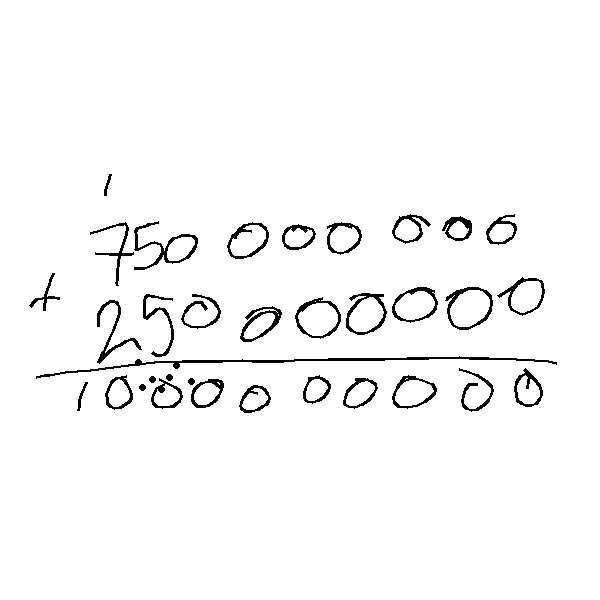 1
750 000 000
+
250 000000
1000000000